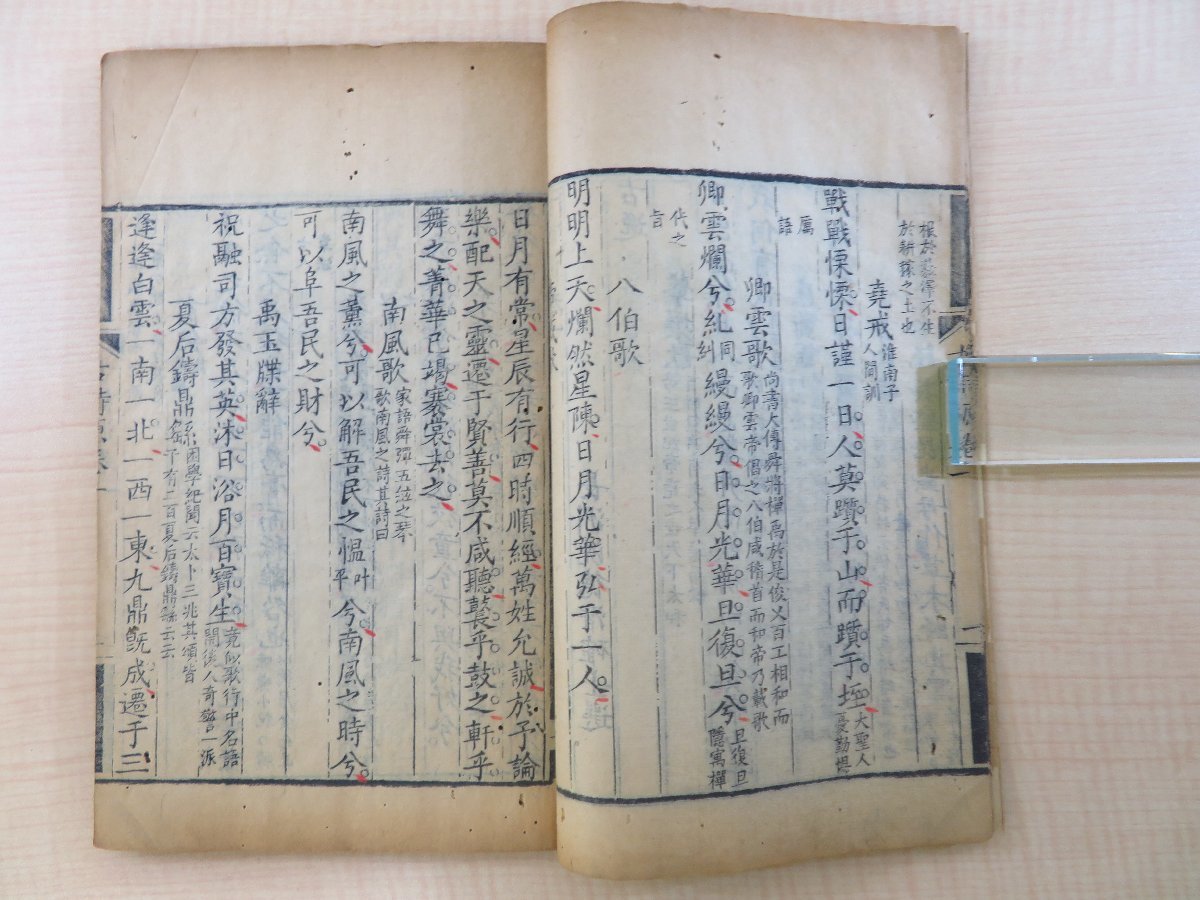 根於 澤不生
於新 之土也
堯戒 淮南子
人間訓
戰戰慄慄日謹一日人莫躓于山而躓于垤 大聖人
憂勤惕
厲
語
卿雲歌 尚書大傳舜將禪禹於是俊乂百工相和而
歌卿雲帝倡之八伯咸稽首而和帝乃載歌
卿雲爛兮糺 同
糾 縵縵兮日月光華旦復旦兮 旦復旦
隱寓禪
代之
旨
八伯歌
明明上天爛然星陳日月光華弘于一人
日月有常星辰有行四時順經萬姓允誠於予論
樂配天之靈遷于賢善莫不咸聽鼚乎鼓之軒乎
舞之菁華已竭褰裳去之
南風歌 家語舜彈五絃之琴
歌南風之詩其詩曰
南風之薰兮可以解吾民之愠 叶
平 兮南風之時兮
可以阜吾民之財兮
禹玉牒辭
祝融司方發其英沐日浴月百寶生 竟似歌行中名語
開後人奇警一派
夏后鑄鼎繇 困學紀聞云太卜三兆其頌皆
千有二百夏后鑄鼎繇云云
逢逢白雲一南一北一西一東九鼎既成遷于三